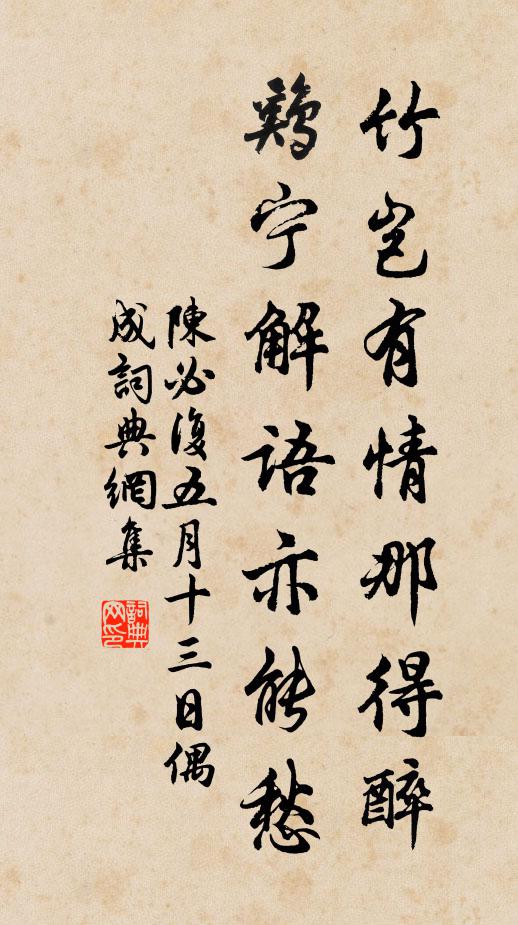 竹岂有情那得醉
鶏宁解语亦能愁
陳必復五月十三日偶
成詞典網集
詞典
网印